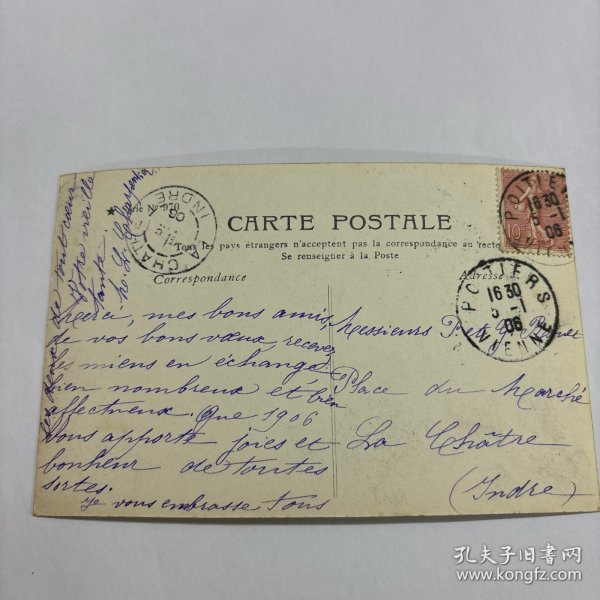 Série No 970
CARTE POSTALE
Tous les pays étrangers n'acceptent pas la correspondance au recto
Se renseigner à la Poste
Correspondance
Adresse
Merci, mes bons amis,
de vos bons vœux, recevez
les miens en échange
bien nombreux et bien
affectueux. Que 1906
vous apporte joies et
bonheur de toutes
sortes.
Je vous embrasse tous
les deux de tout cœur
Votre vieille
tante
Messieurs P et
Place du Marché
La Châtre
(Indre)
LA CHATRE
INDRE
POITIERS
16 30
5 -1
06
VIENNE
POITIE
16 30
5 -1
06
10
孔夫子旧书网
www.kongfz.com